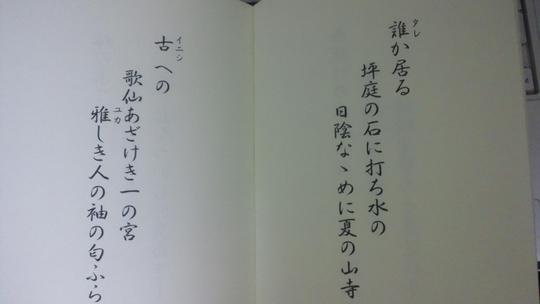 誰か居る
タレ
坪庭の石に打ち水の
日陰なゝめに夏の山寺
古への
イニシ
歌仙あざけき一の宮
雅しき人の袖の匂ふら
ユカ